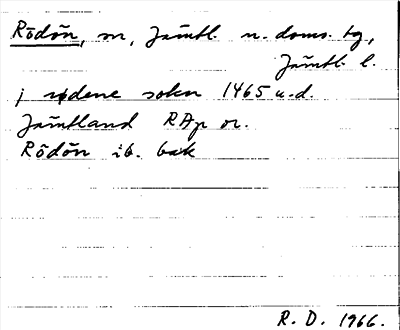 Rödön, sn, Jämtl. n. doms. tg,
Jämtl. l.
j rødene sokn 1465 u.d.
Jämtland RAp or.
Rödön ib. bak
R. D. 1966.